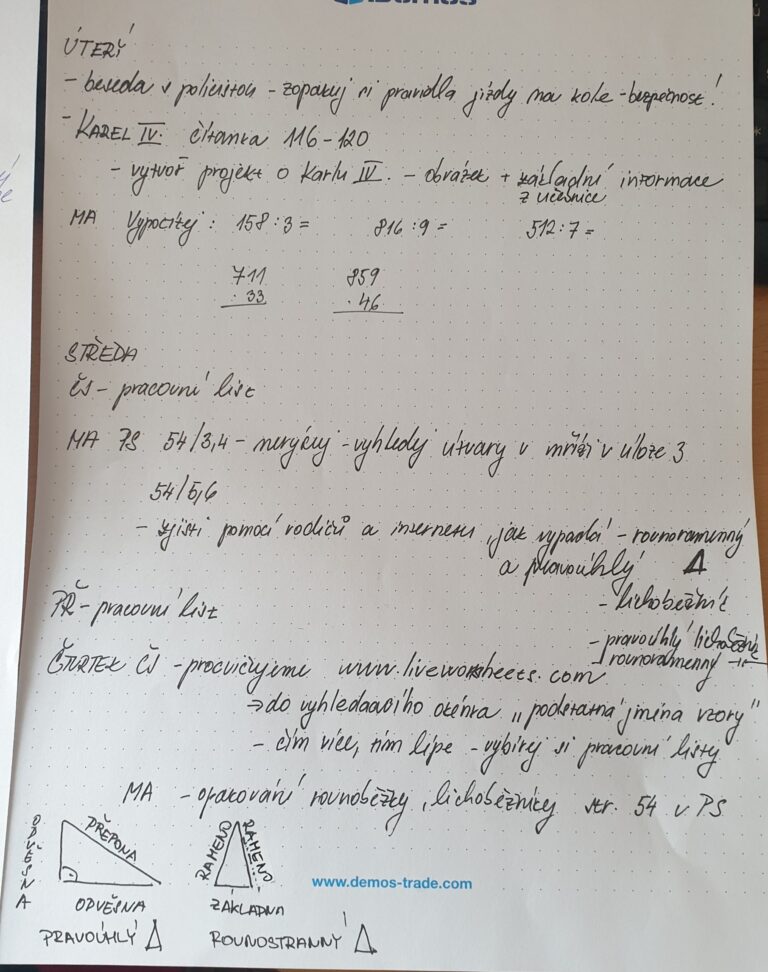 Demos
ÚTERÝ
- beseda s policistou - zopakuj si pravidla jízdy na kole - bezpečnost!
- KAREL IV. čítanka 116-120
- vytvoř projekt o Karlu IV. - obrázek + základní informace
z učebnice
MA Vypočítej: 158:3= 816:9= 512:7=
711 859
.33 .46
STŘEDA
ČS - pracovní list
MA PS 54/3,4 - nerýsuj - vyhledej útvary v mříži v úloze 3
54/5,6
- zjisti pomocí rodičů a internetu, jak vypadá - rovnoramenný
a pravoúhlý Δ
- lichoběžník
PŘ - pracovní list
- pravoúhlý lichoběžník
rovnoramenný -"-
ČTVRTEK ČS - procvičujeme www.liveworsheets.com
⇒ do vyhledávacího okénka „podstatná jména vzory"
- čím více, tím lépe - vybírej si pracovní listy
MA - opakování rovnoběžky, lichoběžníky str. 54 v PS
ODVĚSNA PŘEPONA RAMENO RAMENO
www.demos-trade.com
ODVĚSNA ZÁKLADNA
PRAVOÚHLÝ Δ ROVNOSTRANNÝ Δ